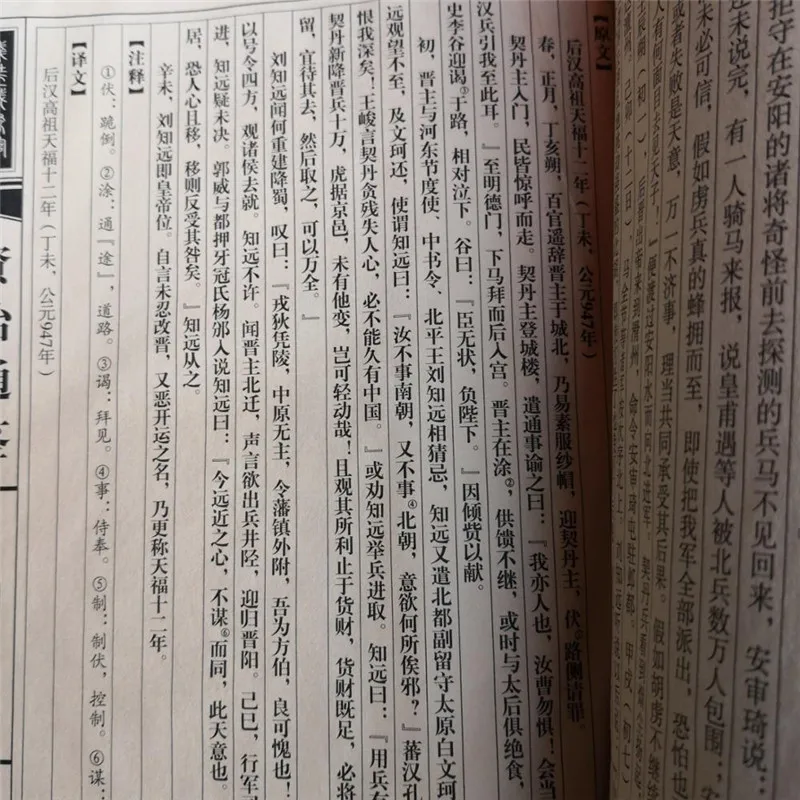 拒守在安阳的诸将奇怪前去探测的兵马不见回来，安审琦说：
还未说完，有一人骑马来报，说皇甫遇等人被北兵数万人包围；安
未必可信，假如虏兵真的蜂拥而至，即使把我军全部派出，恐怕也
或者失败是天意，万一不济事，理当共同承受其后果。假如胡虏不继续
便渡过安阳水而向北进军。契丹兵看到
【原文】
后汉高祖天福十二年（丁未，公元947年）
春，正月，丁亥朔，百官遥辞晋主于城北，乃易素服纱帽，迎契丹主，伏①路侧请罪。
契丹主入门，民皆惊呼而走。契丹主登城楼，遣通事谕之曰：『我亦人也，汝曹勿惧！会当
汉兵引我至此耳。』至明德门，下马拜而后入宫。晋主在涂②，供馈不继，或时与太后俱绝食，
史李谷迎谒③于路，相对泣下。谷曰：『臣无状，负陛下。』因倾赀以献。
初，晋主与河东节度使、中书令、北平王刘知远相猜忌，知远又遣北都副留守太原白文珂
远观望不至，及文珂还，使谓知远曰：『汝不事南朝，又不事④北朝，意欲何所俟邪？』蕃汉孔
恨我深矣！王峻言契丹贪残失人心，必不能久有中国。』或劝知远举兵进取。知远曰：『用兵有
契丹新降晋兵十万，虎据京邑，未有他变，岂可轻动哉！且观其所利止于货财，货财既足，必将
留，宜待其去，然后取之，可以万全。』
刘知远闻何重建降蜀，叹曰：『戎狄凭陵，中原无主，令藩镇外附，吾为方伯，良可愧也！
以号令四方，观诸侯去就。知远不许。闻晋主北迁，声言欲出兵井陉，迎归晋阳。己巳，行军司
进，知远疑未决。郭威与都押牙冠氏杨邠入说知远曰：『今远近之心，不谋⑥而同，此天意也。
居，恐人心且移，移则反受其咎矣。』知远从之。
辛未，刘知远即皇帝位。自言未忍改晋，又恶开运之名，乃更称天福十二年。
【注释】
①伏：跪倒。②涂：通『途』，道路。③谒：拜见。④事：侍奉。⑤制：制伏，控制。⑥谋：
【译文】
后汉高祖天福十二年（丁未，公元947年）